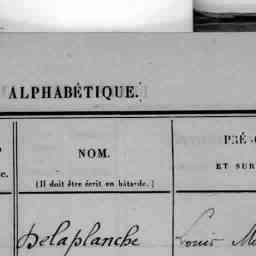 ALPHABÉTIQUE.
NOM.
(Il doit être écrit en bâtarde.)
ET SUR
Delaplanche Louis